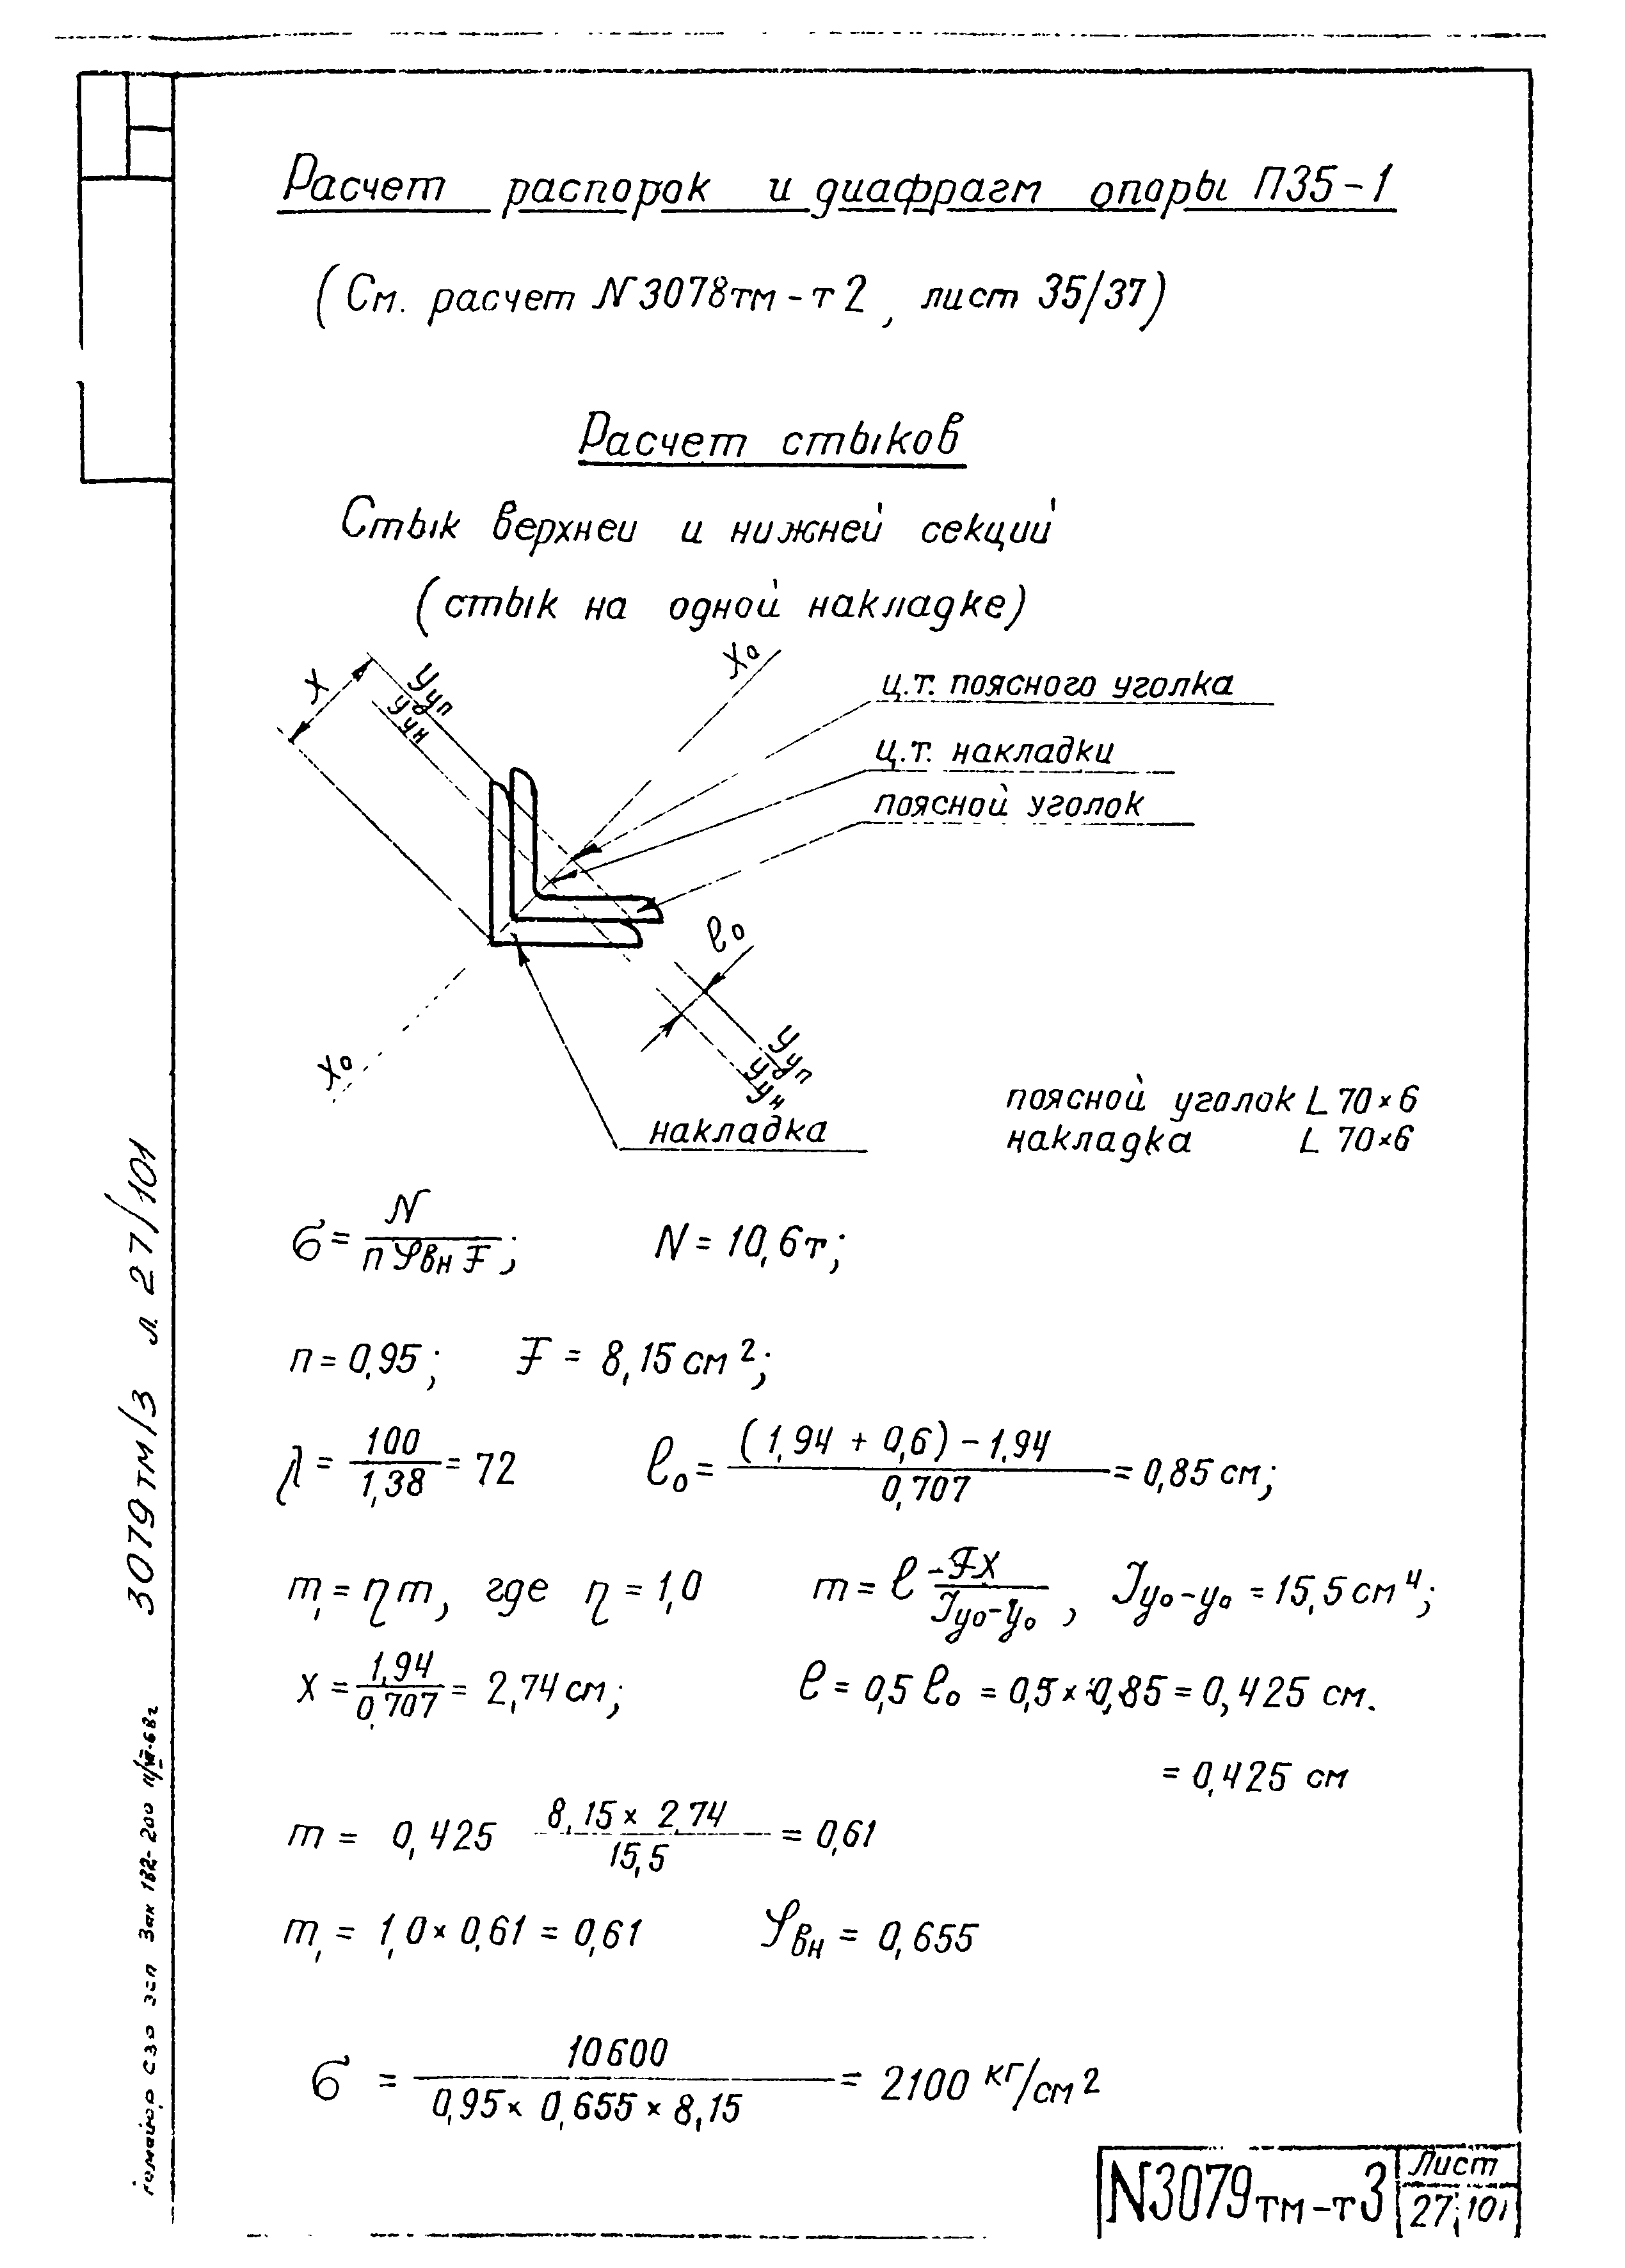 Расчет распорок и диафрагм опоры П35-1
(См. расчет N3078тм-т2, лист 35/37)
Расчет стыков
Стык верхнеи и нижней секций
(стык на одной накладке)
X
Yуп
Yун
X₀
ц.т. поясного уголка
ц.т. накладки
поясной уголок
ℓ₀
X₀
Yуп
Yун
накладка
поясной уголок L 70×6
накладка L 70×6
σ = N / (n φвн F); N = 10,6т;
n = 0,95; F = 8,15 см²;
λ = 100 / 1,38 = 72 ℓ₀ = ((1,94 + 0,6) - 1,94) / 0,707 = 0,85 см;
m₁ = ηm, где η = 1,0 m = ℓ FX / Jy₀-y₀, Jy₀-y₀ = 15,5 см⁴;
X = 1,94 / 0,707 = 2,74 см; ℓ = 0,5 ℓ₀ = 0,5 × 0,85 = 0,425 см.
= 0,425 см
m = 0,425 8,15 × 2,74 / 15,5 = 0,61
m₁ = 1,0 × 0,61 = 0,61 φвн = 0,655
σ = 10600 / (0,95 × 0,655 × 8,15) = 2100 кг/см²
N3079тм-т3
Лист
27 101
3079тм/3 л. 27/101
СЗО ЗСП Зак 182-200